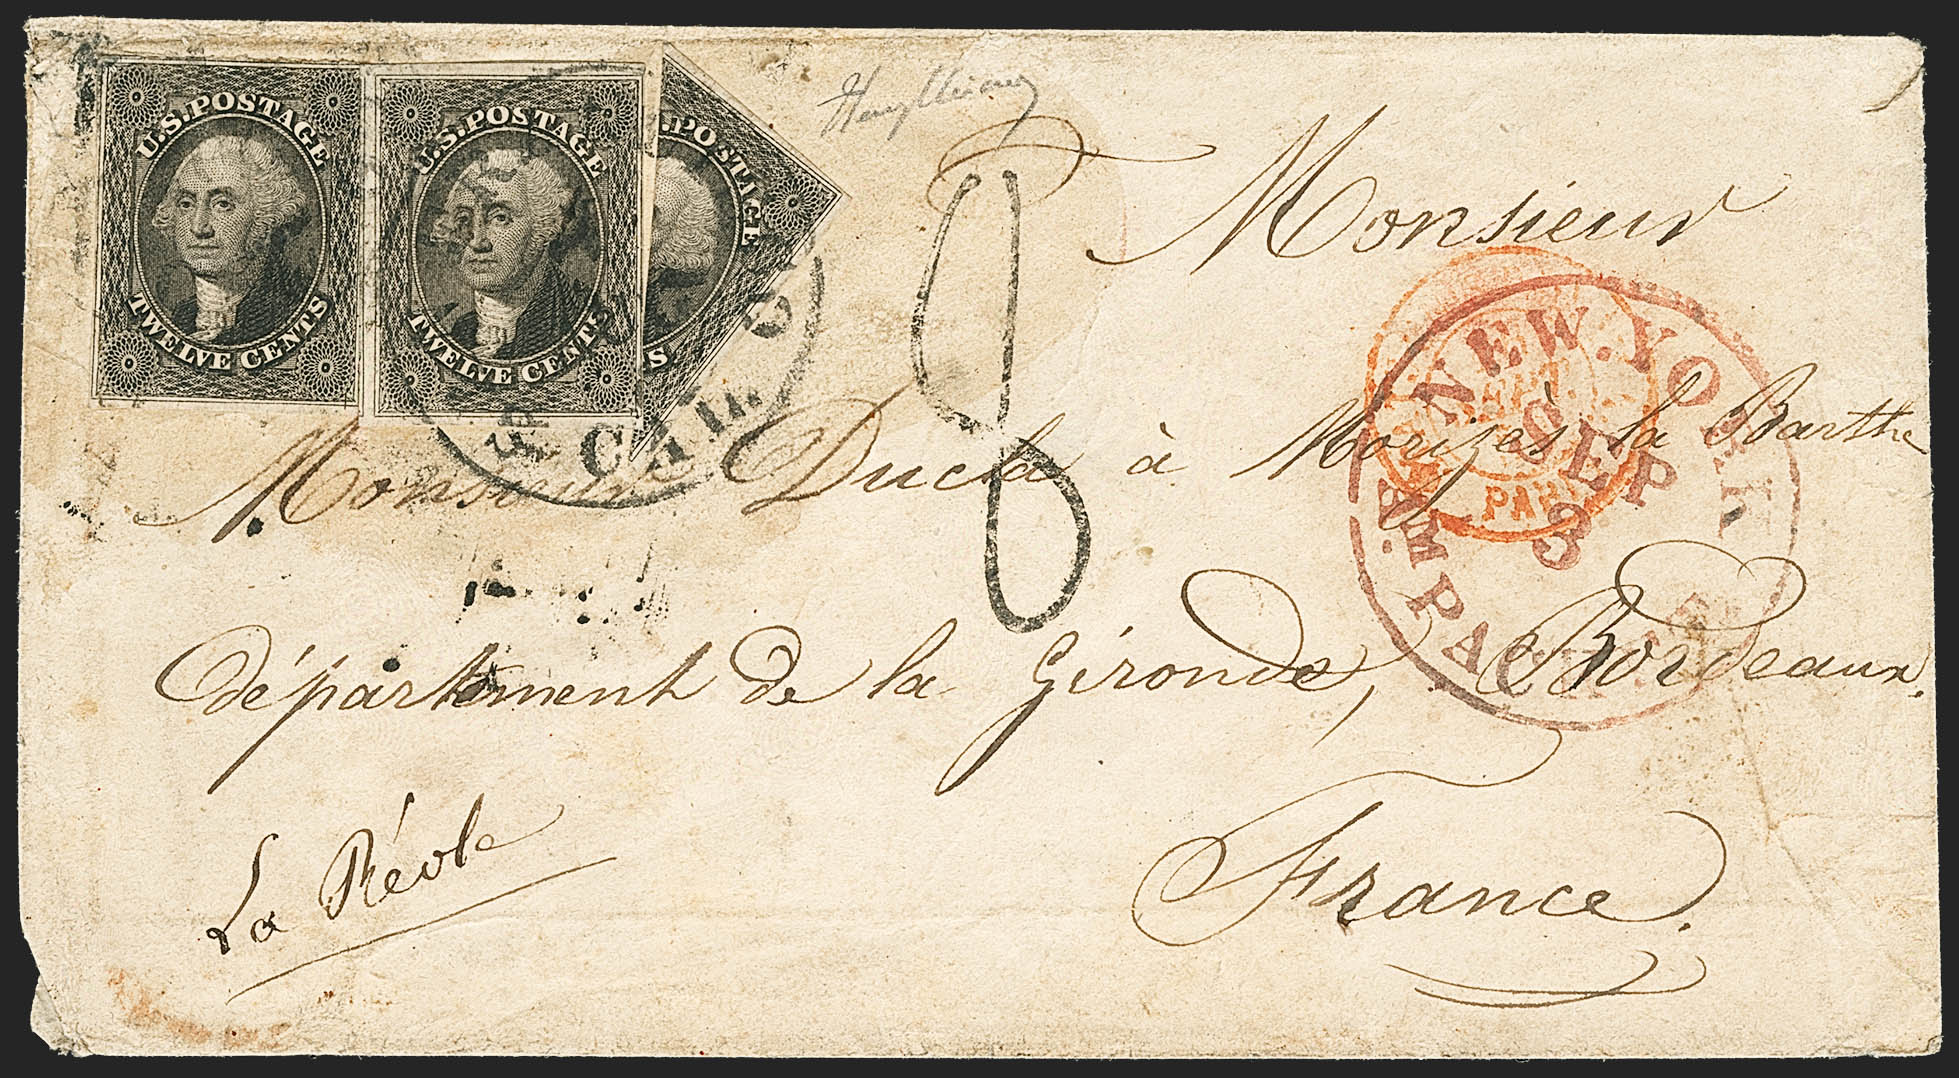 U.S. POSTAGE
TWELVE CENTS
U.S. POSTAGE
TWELVE CENTS
S. POSTAGE
S
CAL.
8
Monsieur
Monsieur Ducla à Morizès la Barthe
département de la Gironde, Bordeaux.
France.
La Réole
NEW. YORK
SEP
3
AM. PACKET
PARIS